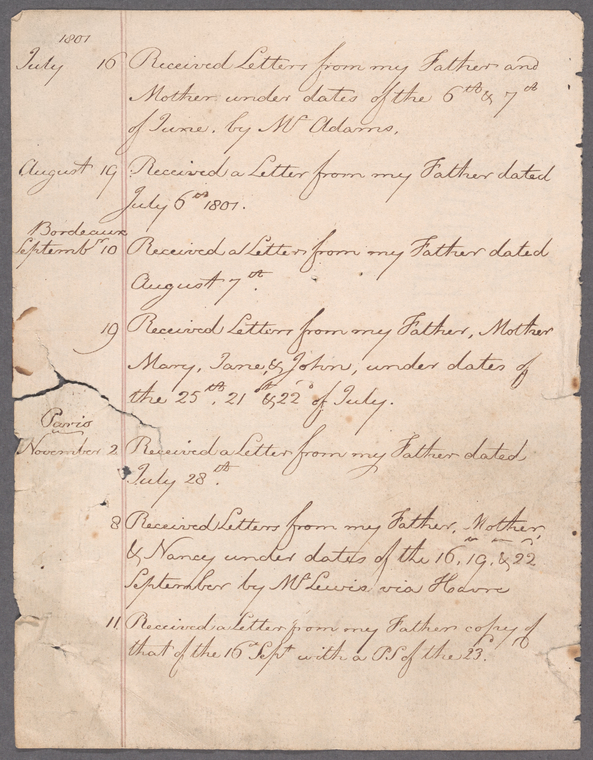 1801
July 16 Received Letters from my Father and
Mother under dates of the 6th & 7th
of June, by Mr Adams.
August 19 Received a Letter from my Father dated
July 6th 1801.
Bordeaux
Septembr 10 Received a Letters from my Father dated
August 7th.
19 Received Letters from my Father, Mother
Mary, Jane, & John, under dates of
the 25th, 21st & 22d of July.
Paris
November 2 Received a Letter from my Father dated
July 28th.
8 Received Letters from my Father, Mother,
& Nancy under dates of the 16, 19, & 22
September by Mr Lewis via Havre
11 Received a Letter from my Father copy of
that of the 16th Sept with a PS of the 23.